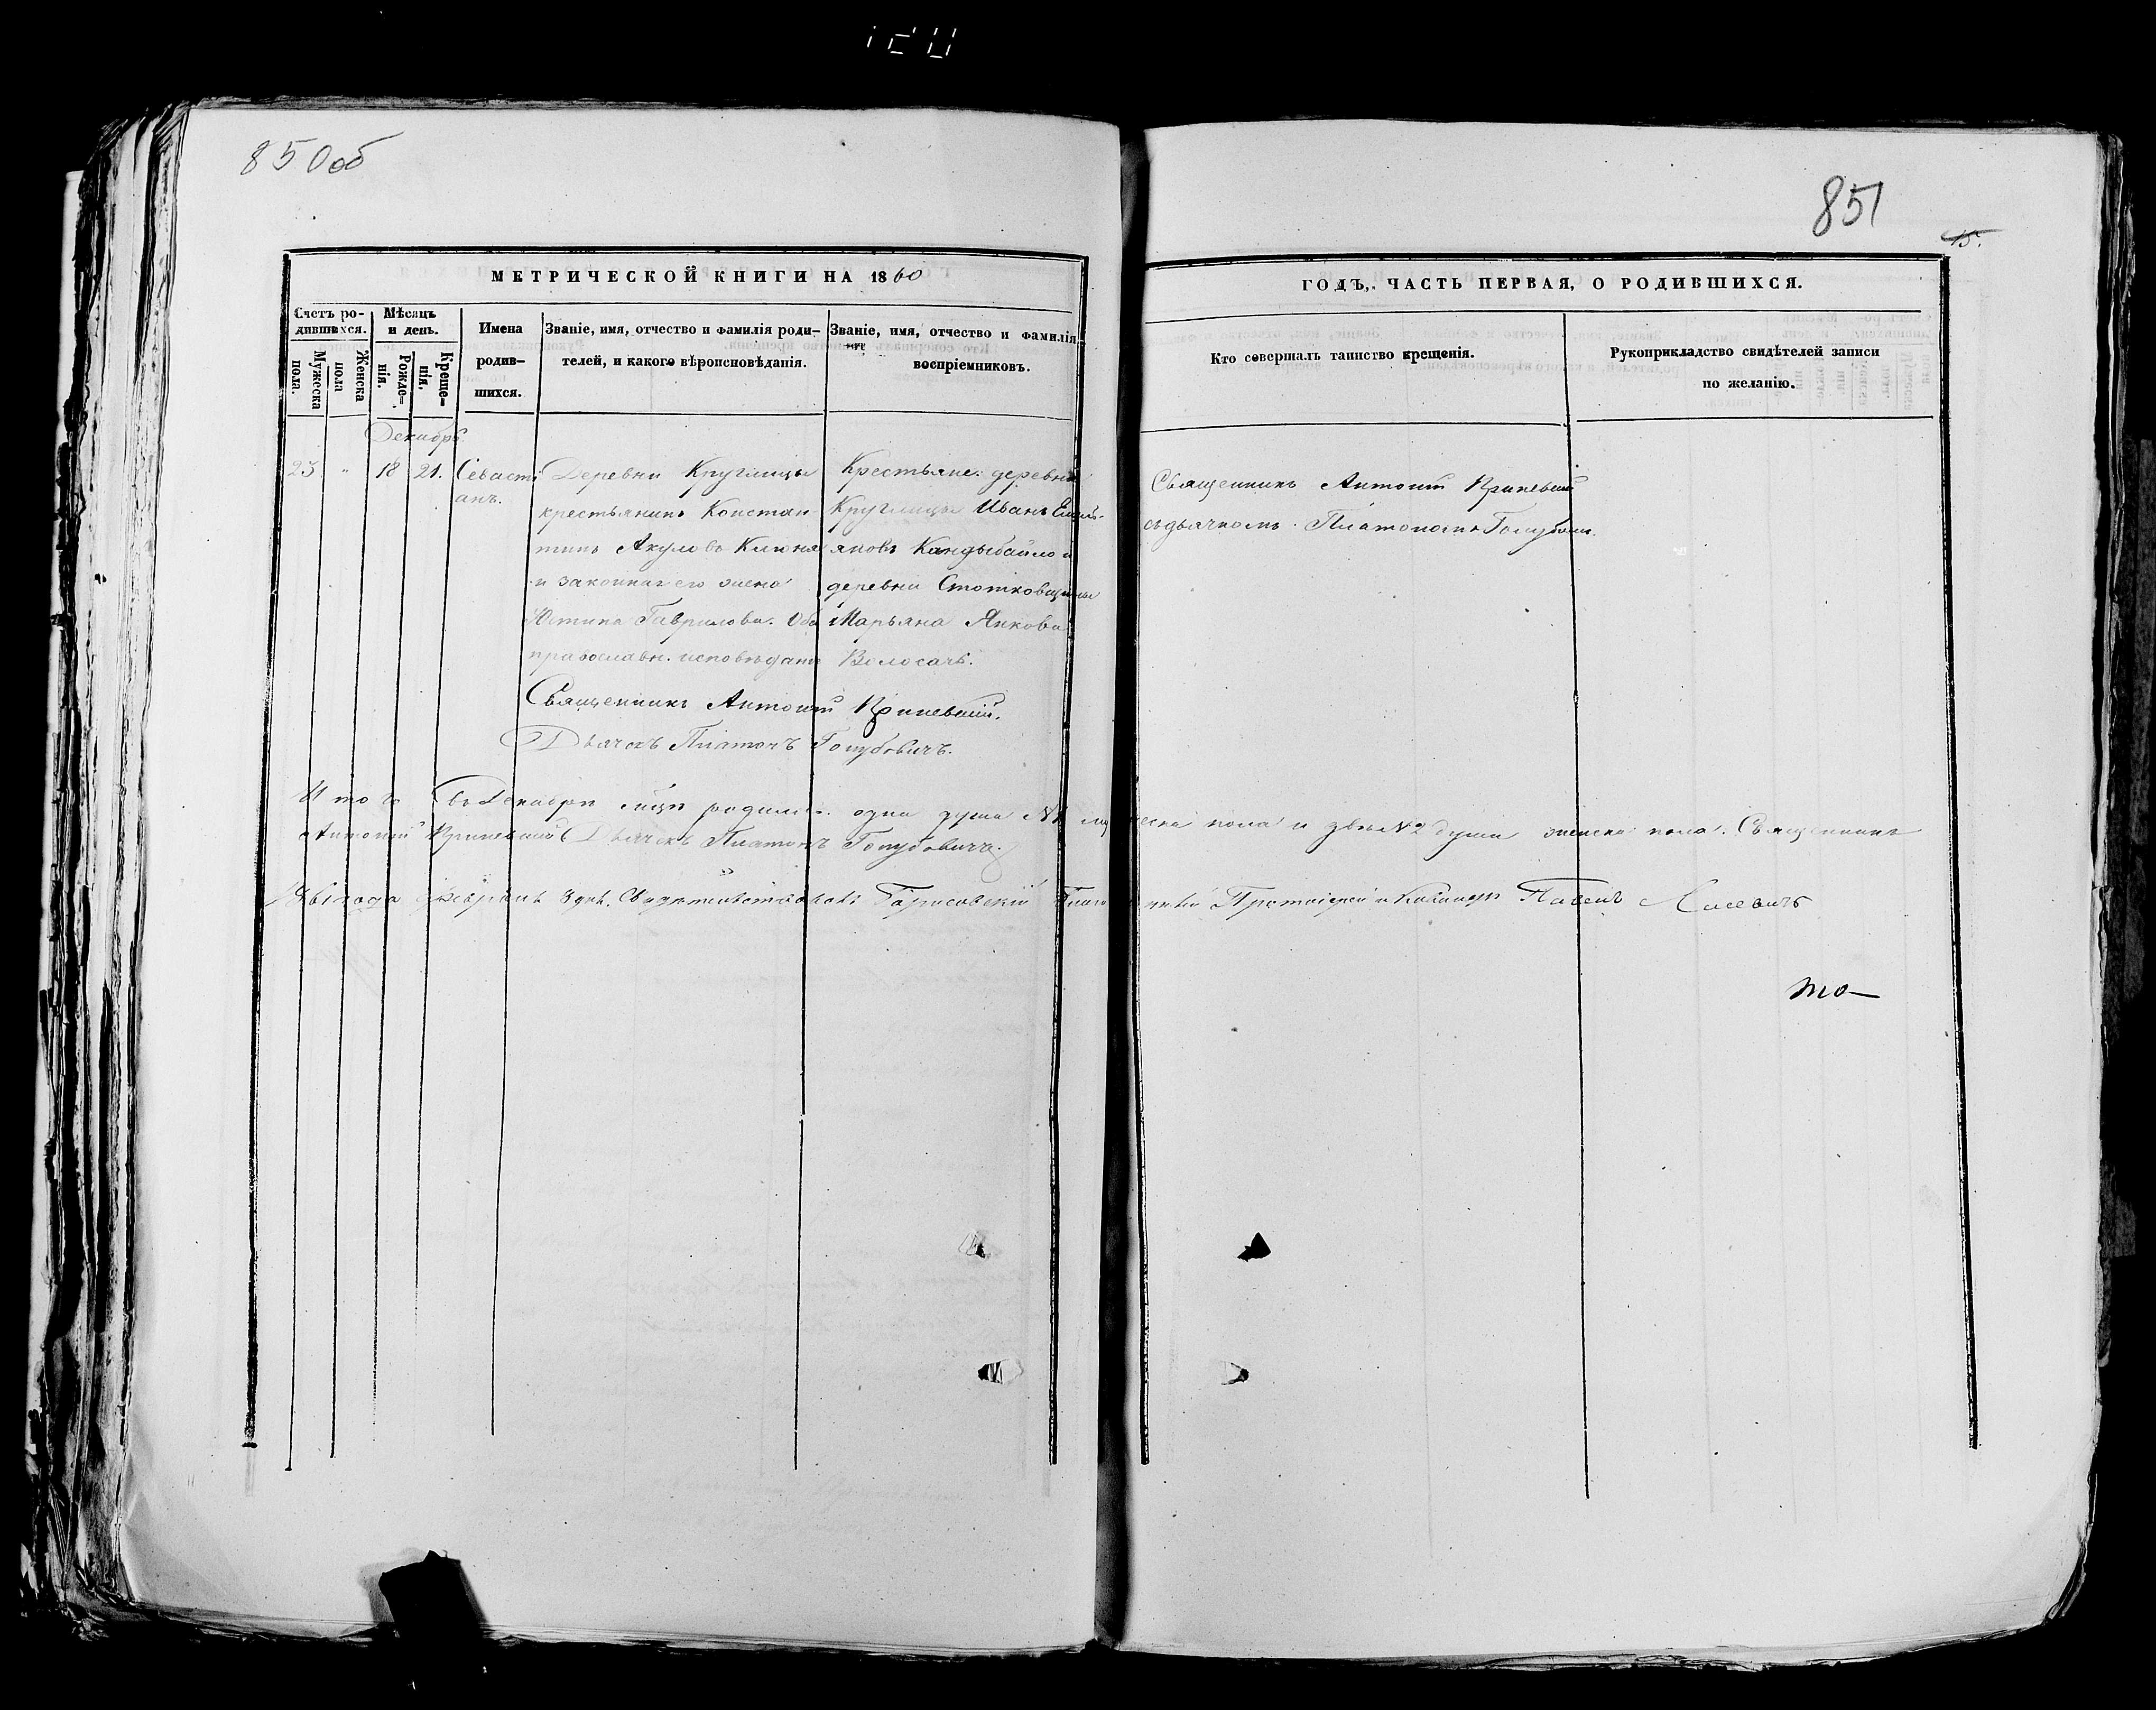 850об
851
15.
МЕТРИЧЕСКОЙ КНИГИ НА 1860
ГОДЪ, ЧАСТЬ ПЕРВАЯ, О РОДИВШИХСЯ.
Счетъ ро-
дившихся.
Мужеска
пола.
Женска
пола
Мѣсяцъ
и день.
Рожде-
нія.
Креще-
нія.
Имена
родив-
шихся.
Званіе, имя, отчество и фамилія роди-
телей, и какого вѣроисповѣданія.
Званіе, имя, отчество и фамилія
воспріемниковъ.
Кто совершалъ таинство крещенія.
Рукоприкладство свидѣтелей записи
по желанію.
Декабрь
23 " 18 21.
Севасті
анъ.
Деревни Круглицы
крестьянинъ Констан-
тинъ Акуловъ
и законная его жена
Юстина Гаврилова. Оба
православн. исповѣданія
Крестьяне: деревни
Круглицы Иванъ Емель-
яновъ Кандыбайло и
деревни
Марьяна Янкова
Волосачъ.
Священникъ Антоній Криневскій
съ дьячкомъ Платономъ Голубови.
Священникъ Антоній Криневскій.
Дьячекъ Платонъ Голубовичъ.
Итого въ Декабрѣ м-цѣ родилось одна душа №1 му ческа пола и двѣ №2 души женска пола. Священникъ
Антоній Криневскій Дьячекъ Платонъ Голубовичъ.
1861 года Февраля 3 дня. Свидѣтельствовалъ Борисовскій Благо чинный Протоіерей и Кавалеръ Павелъ